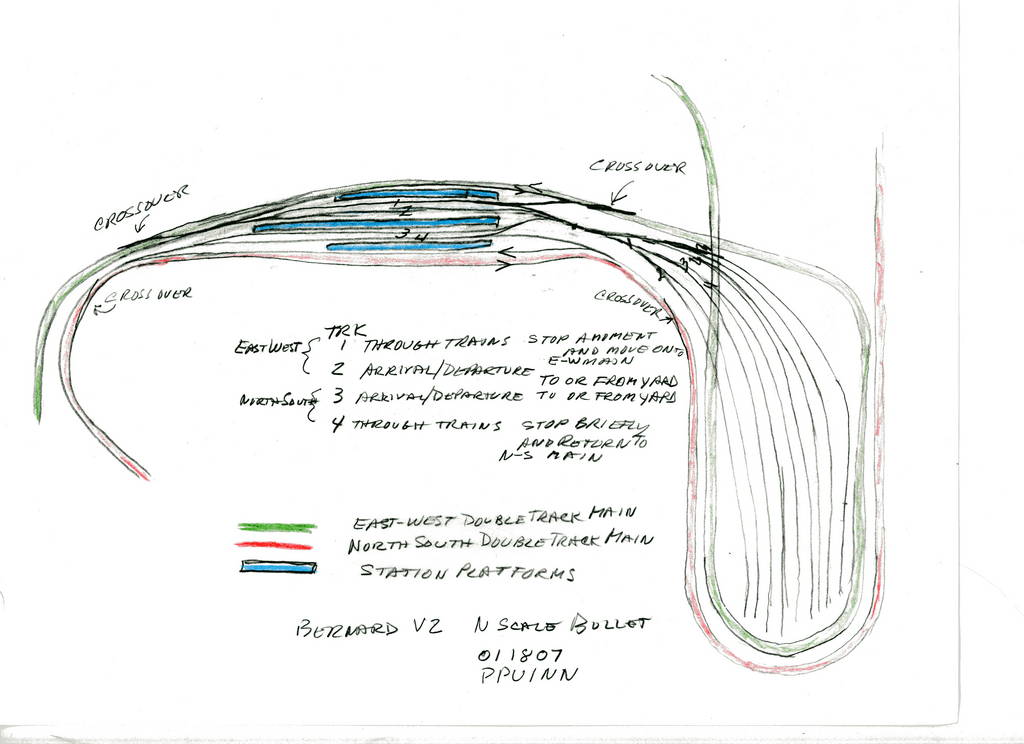 CROSSOVER
CROSSOVER
CROSSOVER
CROSSOVER
1
2
3 4
1
2
3
4
TRK
EAST WEST { 1 THROUGH TRAINS STOP A MOMENT AND MOVE ON TO E-W MAIN
2 ARRIVAL/DEPARTURE TO OR FROM YARD
NORTH SOUTH { 3 ARRIVAL/DEPARTURE TO OR FROM YARD
4 THROUGH TRAINS STOP BRIEFLY AND RETURN TO N-S MAIN
EAST-WEST DOUBLE TRACK MAIN
NORTH SOUTH DOUBLE TRACK MAIN
STATION PLATFORMS
BERNARD V2 N SCALE BULLET
011807
PPUINN